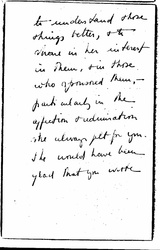 to understand those
things better, & to
share in her interest
in them, & in those
who sponsored them, –
particularly in the
affection & admiration
she always felt for you.
She would have been
glad that you wrote